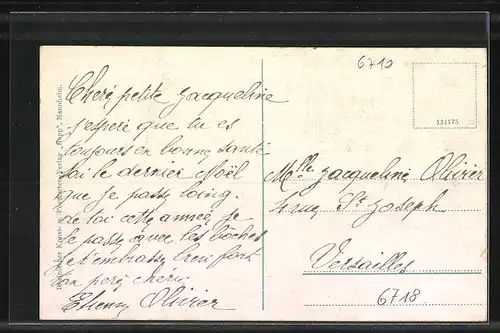 6710
Cheri petite Jacqueline
j'espere que tu es
toujours en bonne santé
sai le dernier Noël
que je passe loing
de toi cette année je
le passe avec les boches
je t'embrasse bien fort
ton pere cheri
Etienne Olivier
131175
Mlle Jacqueline Olivier
4 rue St Joseph
Versailles
6718
Kunst- "Depp", Mannheim.